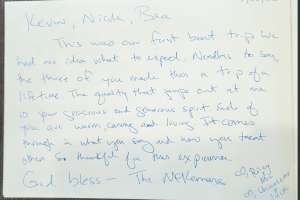 Kevin, Nicole, Bea
This was our first boat trip. We
had no idea what to expect. Needless to say
the three of you made this a trip of a
lifetime. The quality that jumps out at me
is your gracious and generous spirit. Each of
you are warm, caring and loving. It comes
through in what you say and how you treat
others. So thankful for this experience.
God bless — The